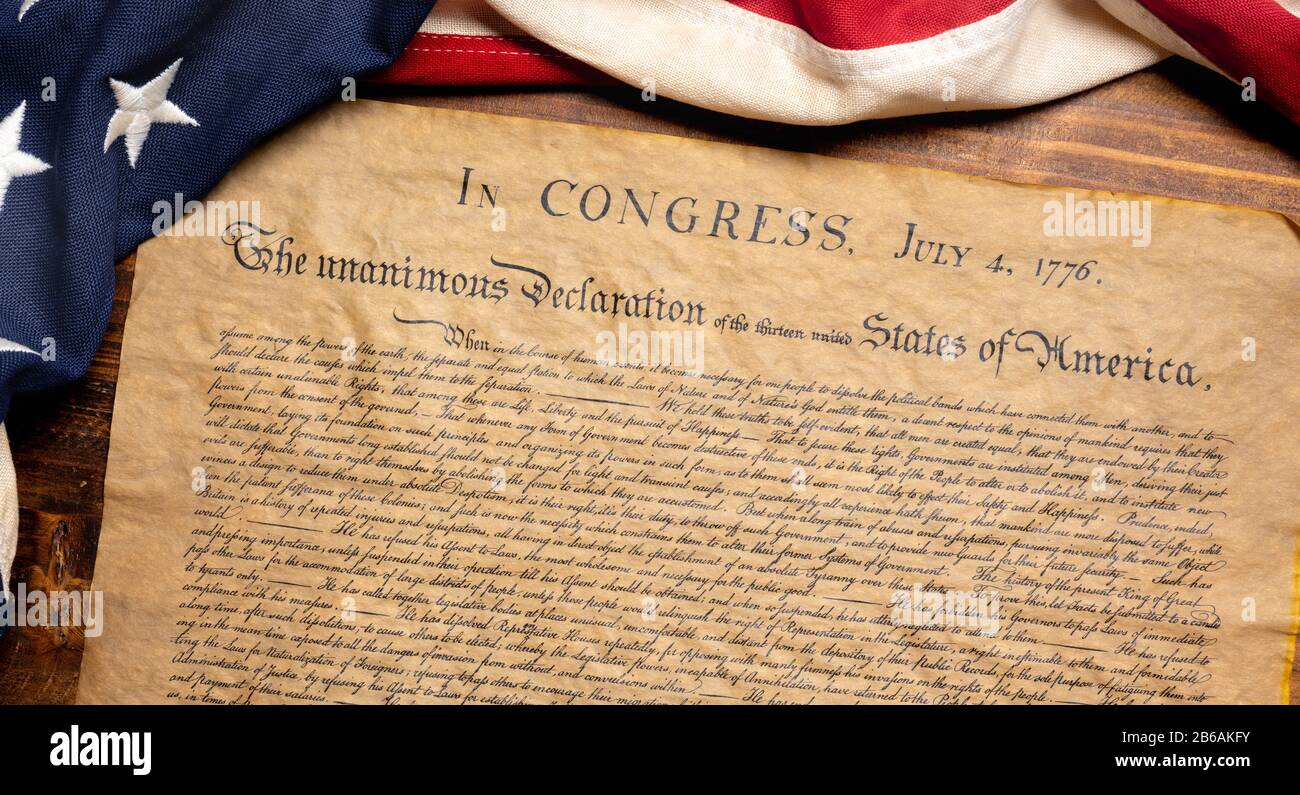 In CONGRESS, July 4, 1776.
The unanimous Declaration of the thirteen united States of America,
When in the Course of human events, it becomes necessary for one people to dissolve the political bands which have connected them with another, and to
assume among the powers of the earth, the separate and equal station to which the Laws of Nature and of Nature's God entitle them, a decent respect to the opinions of mankind requires that they
should declare the causes which impel them to the separation. We hold these truths to be self-evident, that all men are created equal, that they are endowed by their Creator
with certain unalienable Rights, that among these are Life, Liberty and the pursuit of Happiness — That to secure these rights, Governments are instituted among Men, deriving their just
powers from the consent of the governed, — That whenever any Form of Government becomes destructive of these ends, it is the Right of the People to alter or to abolish it, and to institute new
Government, laying its foundation on such principles and organizing its powers in such form, as to them shall seem most likely to effect their Safety and Happiness. Prudence, indeed,
will dictate that Governments long established should not be changed for light and transient causes; and accordingly all experience hath shewn, that mankind are more disposed to suffer, while
evils are sufferable, than to right themselves by abolishing the forms to which they are accustomed. But when a long train of abuses and usurpations, pursuing invariably the same Object
evinces a design to reduce them under absolute Despotism, it is their right, it is their duty, to throw off such Government, and to provide new Guards for their future security. — Such has
been the patient sufferance of these Colonies; and such is now the necessity which constrains them to alter their former Systems of Government. The history of the present King of Great
Britain is a history of repeated injuries and usurpations, all having in direct object the establishment of an absolute Tyranny over these States. To prove this, let Facts be submitted to a candid
world. He has refused his Assent to Laws, the most wholesome and necessary for the public good. He has forbidden his Governors to pass Laws of immediate
and pressing importance, unless suspended in their operation till his Assent should be obtained; and when so suspended, he has utterly neglected to attend to them. He has refused to
pass other Laws for the accommodation of large districts of people, unless those people would relinquish the right of Representation in the Legislature, a right inestimable to them and formidable
to tyrants only. He has called together legislative bodies at places unusual, uncomfortable, and distant from the depository of their Public Records, for the sole purpose of fatiguing them into
compliance with his measures. He has dissolved Representative Houses repeatedly, for opposing with manly firmness his invasions on the rights of the people. He has refused for a
along time, after such dissolutions, to cause others to be elected; whereby the Legislative powers, incapable of Annihilation, have returned to the People
ing in the mean time exposed to all the dangers of invasion from without, and convulsions within. He has
ting the Laws for Naturalization of Foreigners; refusing to pass others to encourage their migration
Administration of Justice, by refusing his Assent to Laws for
and payment of their salaries.
us, in times of
alamy
Image ID: 2B6AKFY
www.alamy.com